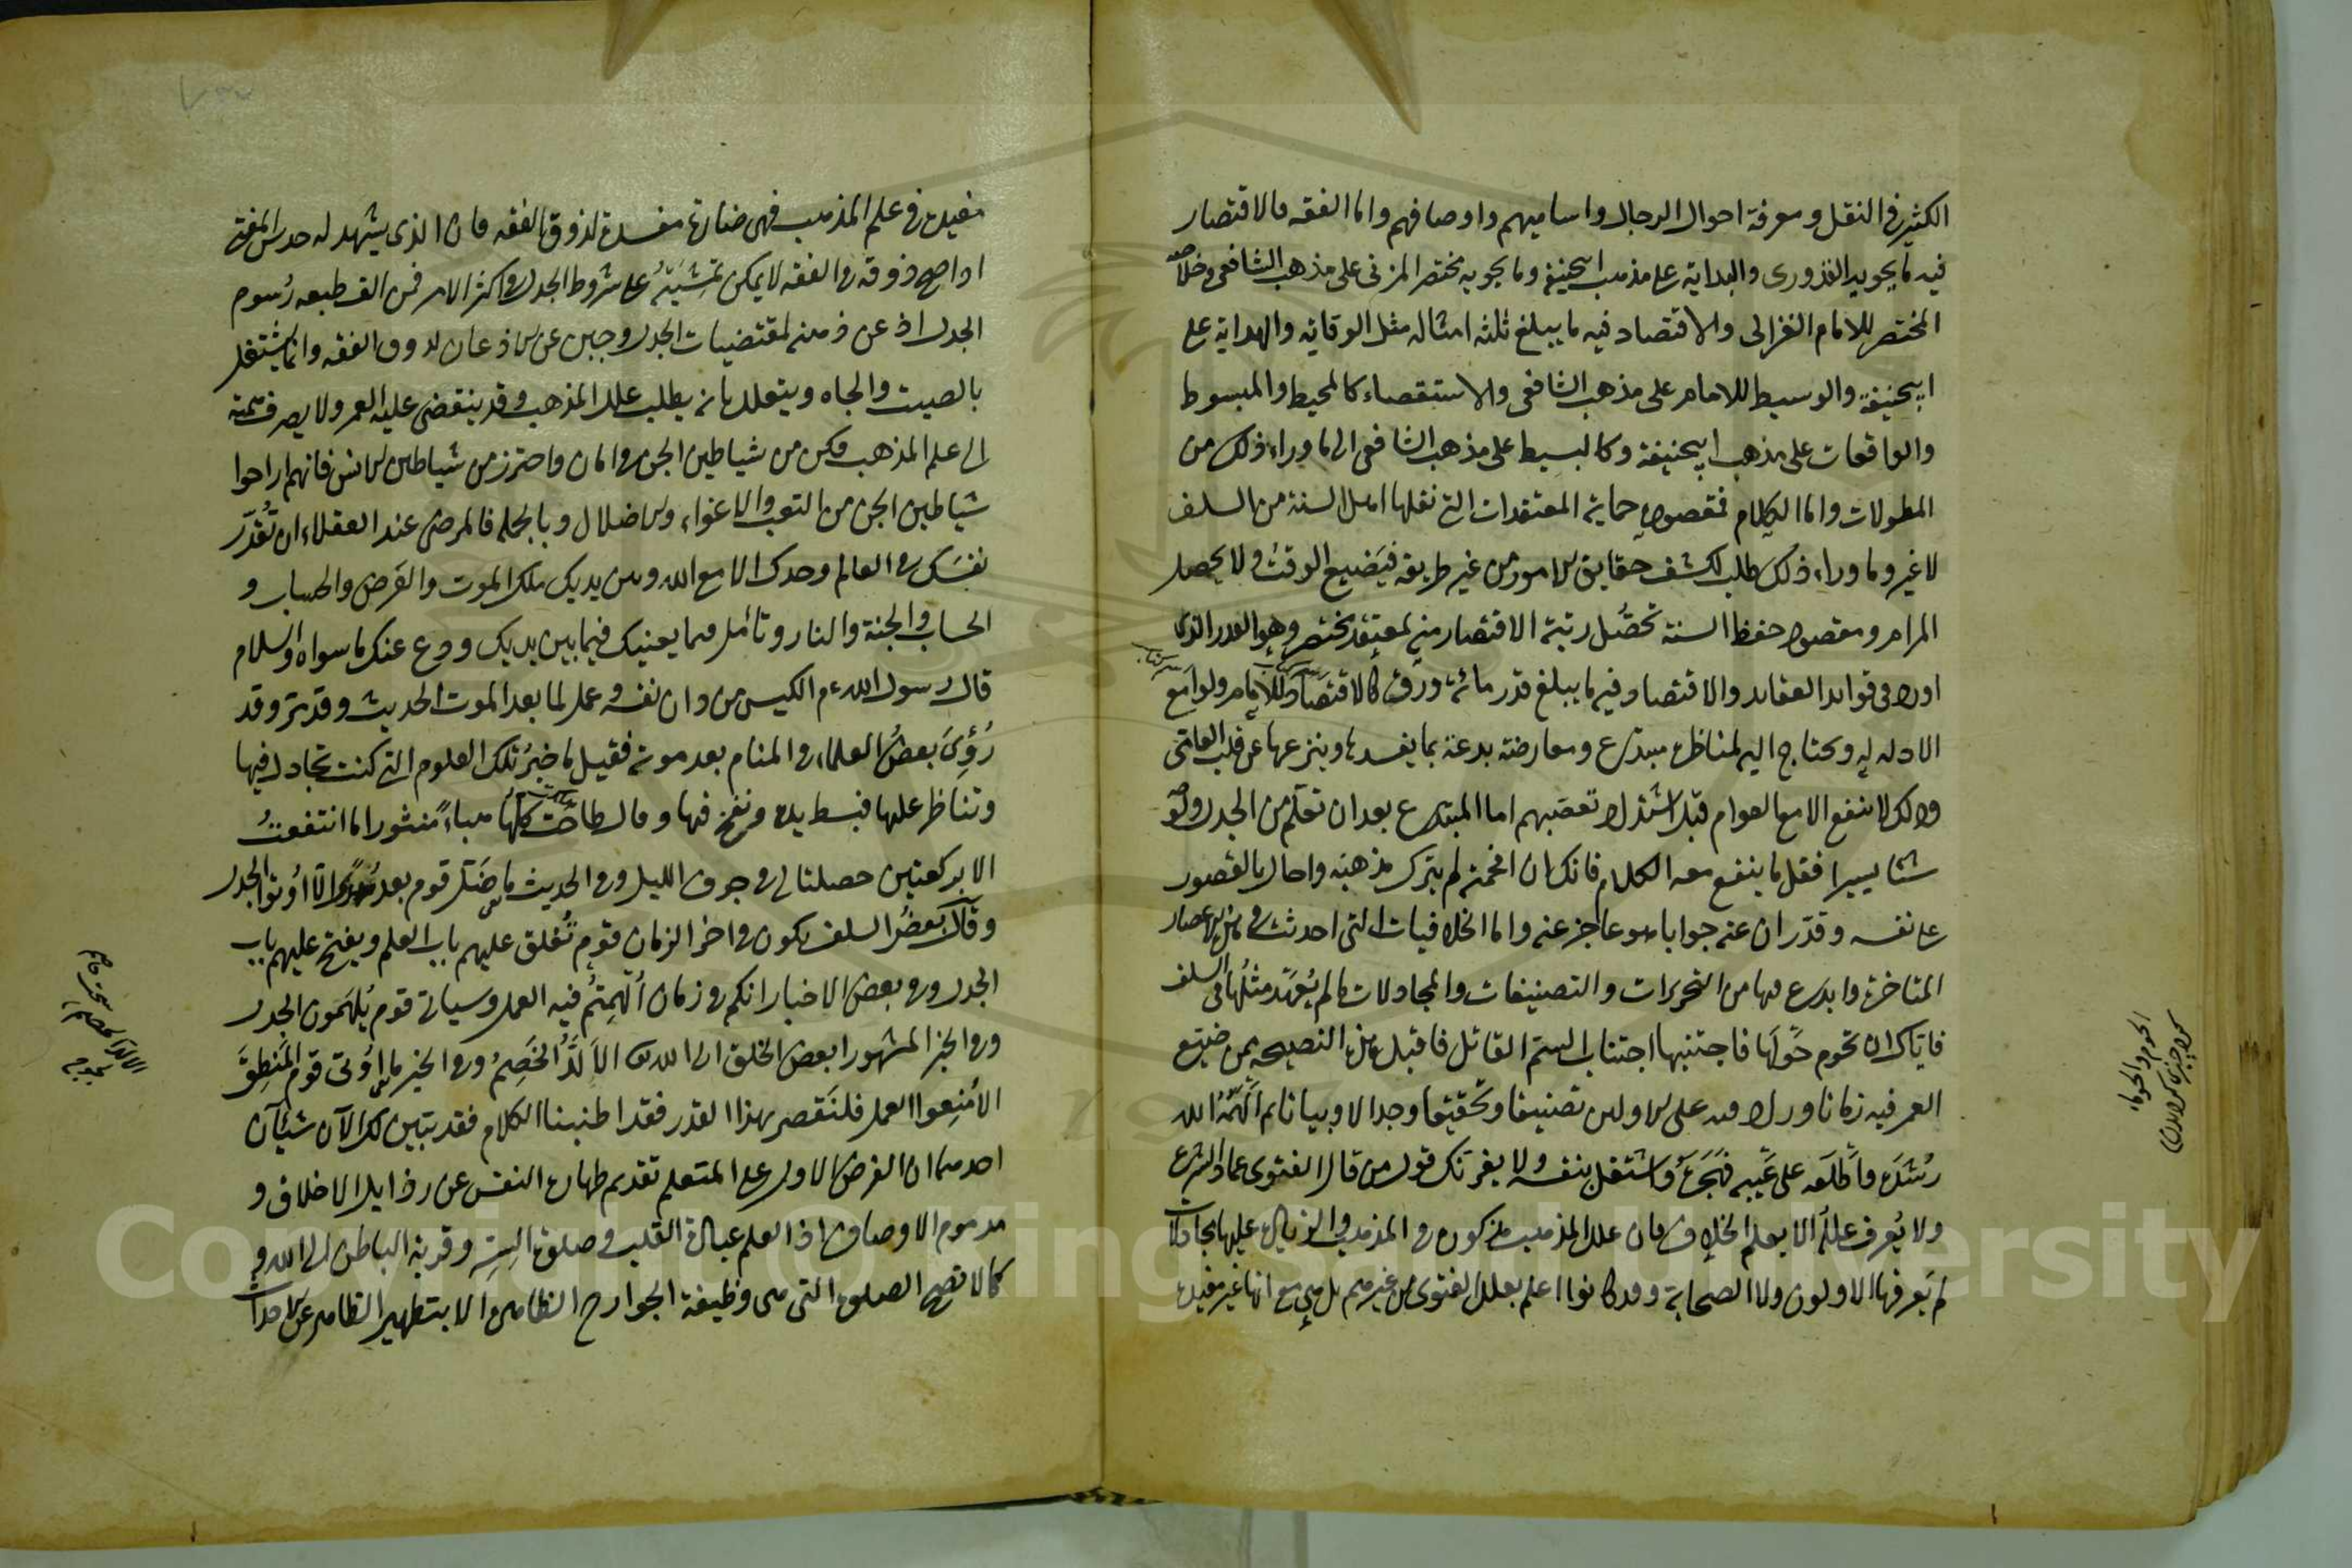 الكثير في النقل ومعرفة احوال الرجال واساميهم واوصافهم واما الفقه فالاقتصار
فيه ما يحويه القدورى والبداية على مذهب ابيحنيفة وما يحويه مختصر المزنى على مذهب الشافعى وخلاصة
المختصر للامام الغزالى والاقتصاد فيه ما يبلغ ثلثه امثاله مثل الوقاية والهداية على
ابيحنيفة والوسيط للامام على مذهب الشافعى والاستقصاء كالمحيط والمبسوط
والواقعات على مذهب ابيحنيفة وكالبسيط على مذهب الشافعى الى ما وراء ذلك من
المطولات واما الكلام فمقصوده حماية المعتقدات التى نقلها اهل السنة من السلف
لا غير وما وراء ذلك طلب لكشف حقايق الامور من غير طريقه فيَضيع الوقتُ ولا يحصل
المرام ومقصود حفظ السنة تحصُل رتبة الاقتصار منه لمعتقد مختصر وهو القدر الذى
اورد فى قواعد العقائد والاقتصاد فيه ما يبلغ قدر مائة ورق كالاقتصاد للامام ولوامع
الادله له ويحتاج اليه لمناظرة مبتدع ومعارضة بدعة بما يفسدها وينزعها عن قلب العامّى
وذلك لا ينفع الا مع العوام قبل اشتداد تعصّبهم اما المبتدع بعد ان تعلّم من الجدل ولو
شئا يسيرا فقل ما ينفع معه الكلام فانك ان افحمته لم يترك مذهبه واحال بالقصور
على نفسه وقدّر ان عند جوابا هو عاجز عنه واما الخلافيات التى احدثت فى هذه الاعصار
المتاخرة وابدع فيها من التحريرات والتصنيفات والمجادلات ما لم يُعهَد مثلُها فى السلف
فايّاك ان تحوم حَولَها فاجتنبها اجتناب السم القاتل فاقبل هذه النصيحه ممن ضيّع
العمر فيه زمانا وزاد فيه على الاولين تصنيفا وتحقيقا وجدالا وبيانا ثم اَلْهَمَهُ الله
رُشدَه واَطْلَعَه على عَيبه فهَجَرهُ واشتغل بنفسه ولا يغرّنك قول من قال الفتوى عماد الشرع
ولا يُعرف عللُه الا بعلم الخلاف فان علل المذهب مذكورة فى المذهب والزيادة عليها مجادلات
لم يَعرفها الاولون ولا الصحابة وقد كانوا اعلم بعلل الفتوى من غيرهم بل هى مع انها غير مفيدة
الحوم والحومان
مفيدة فى علم المذهب فهى ضارّة مفسدة لذوق الفقه فان الذى يشهد له حدس المفتى
اذا صح ذوقه فى الفقه لا يمكن تمشيَتُه على شروط الجدل فى اكثر الامر فمن الف طبعه رُسوم
الجدل اذعن ذهنه لمقتضيات الجدل وجبن عن الاذعان لذوق الفقه وانما يشتغل
بالصيت والجاه ويتعلل بانه يطلب علل المذهب وقد ينقضى عليه العمر ولا يصرف همّته
الى علم المذهب فكن من شياطين الجن فى امان واحترز من شياطين الانس فانهم اراحوا
شياطين الجن من التعب والاغواء والاضلال وبالجمله فالمرضى عند العقلاء ان تُقدّر
نفسَك فى العالم وحدك الا مع الله وبين يديك ملك الموت والعَرض والحساب و
الحساب والجنة والنار وتأمل فيما يعينك فيما بين يديك ودع عنك ما سواه والسلام
قال رسول الله م الكيس من دان نفسه وعمل لما بعد الموت الحديث وقد مرّ وقد
رُؤِىَ بعضُ العلماء فى المنام بعد موته فقيل ما خبرُ تلك العلوم التى كنت تجادل فيها
وتناظر عليها فبسط يده ونفخ فيها وقال طاحَت كلّها هباءً منثورا ما انتفعتُ
الا بركعتين حصلتا لى فى جوف الليل وفى الحديث ما ضَلّ قوم بعد هُدًى الاّ اُوتوا الجدل
وقال بعضُ السلف يكون فى اخر الزمان قوم تُغلق عليهم باب العلم ويفتح عليهم باب
الجدل وفى بعض الاخبار انكم فى زمان اُلهِمتُم فيه العمل وسيأتى قوم يُلهَمون الجدل
وفى الخبر المشهور ابعض الخلق الى الله تعالى الاَلدُّ الخَصِمُ وفى الخبر ما اُوتى قوم المَنطِقَ
الا مُنِعوا العمل فلنَقصر بهذا القدر فقد اطنبنا الكلام فقد تبيّن لك الآن شيئآن
احدهما ان الغرض الاول على المتعلم تقديم طهارة النفس عن رذايل الاخلاق و
مذموم الاوصاف اذ العلم عبادة القلب وصلوة السِرّ وقربة الباطن الى الله و
كما لا تصح الصلوة التى هى وظيفة الجوارح الظاهرة الا بتطهير الظاهر عن الاحداث